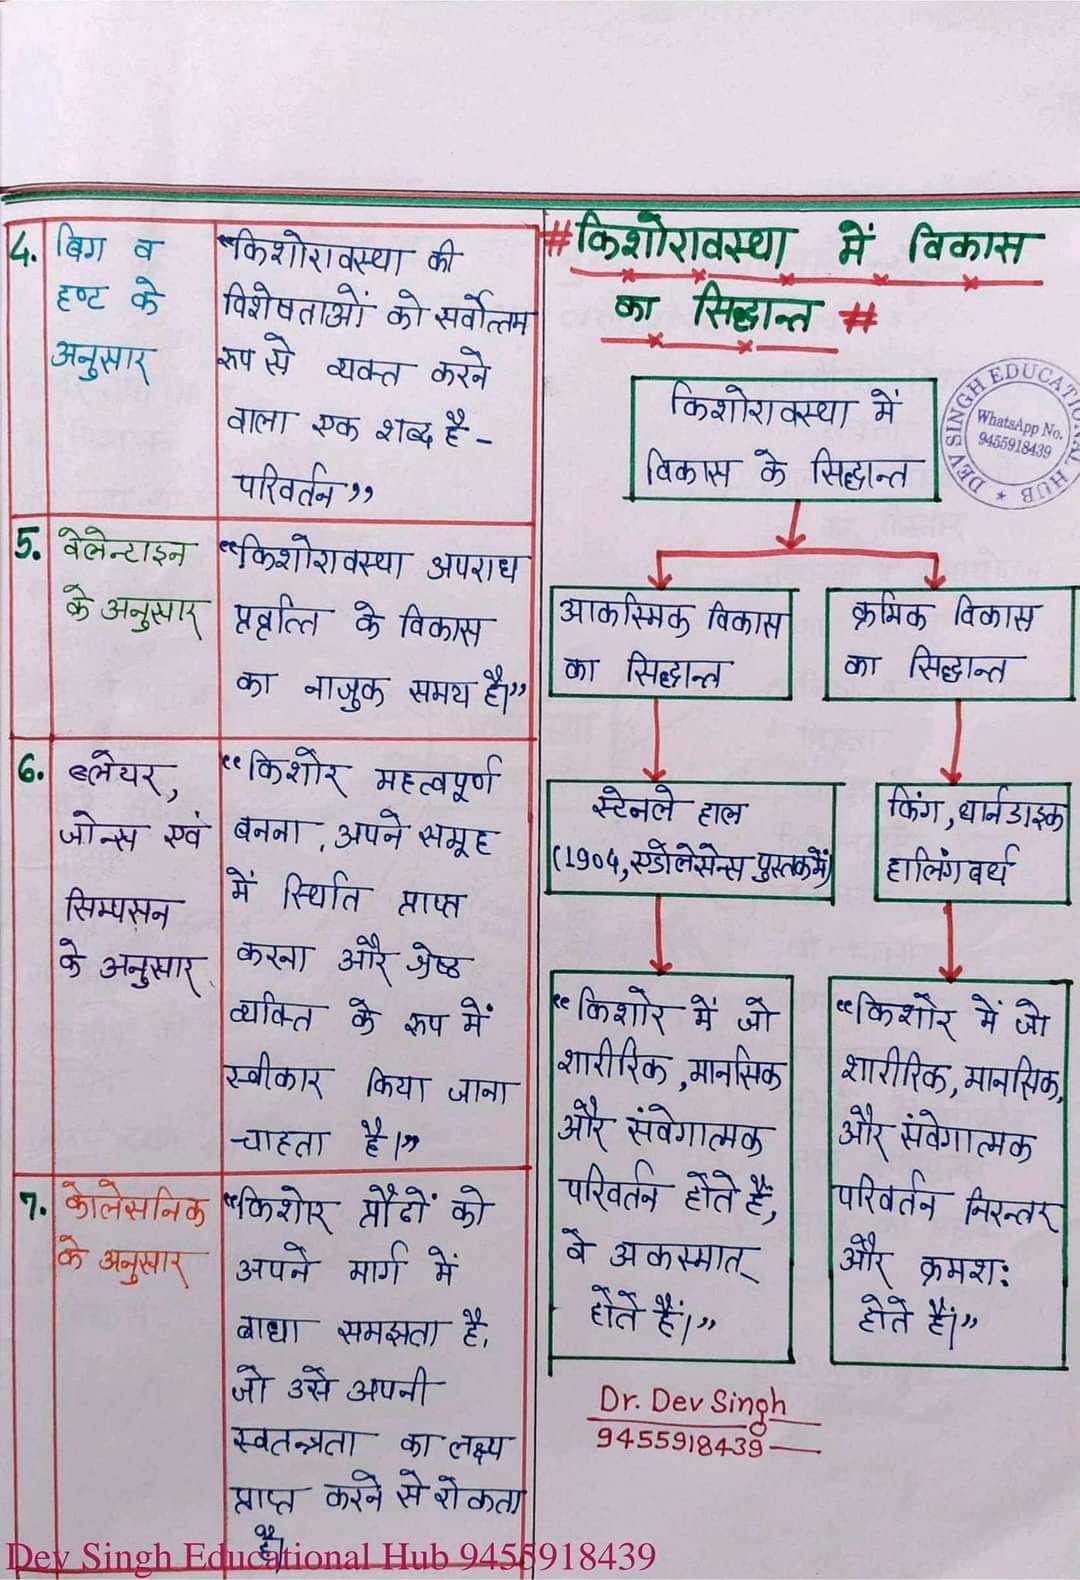 4. बिग व
हण्ट के
अनुसार
“किशोरावस्था की
विशेषताओं को सर्वोत्तम
रूप से व्यक्त करने
वाला एक शब्द है -
परिवर्तन”
5. वेलेन्टाइन
के अनुसार
“किशोरावस्था अपराध
प्रवृत्ति के विकास
का नाजुक समय है।”
6. ब्लेयर,
जोन्स एवं
सिम्पसन
के अनुसार
“किशोर महत्वपूर्ण
बनना, अपने समूह
में स्थिति प्राप्त
करना और श्रेष्ठ
व्यक्ति के रूप में
स्वीकार किया जाना
चाहता है।”
7. कोलेसनिक
के अनुसार
“किशोर प्रौढों को
अपने मार्ग में
बाधा समझता है,
जो उसे अपनी
स्वतन्त्रता का लक्ष्य
प्राप्त करने से रोकता
है।
# किशोरावस्था में विकास
का सिद्धान्त #
किशोरावस्था में
विकास के सिद्धान्त
DEV SINGH EDUCATIONAL HUB
WhatsApp No.
9455918439
आकस्मिक विकास
का सिद्धान्त
क्रमिक विकास
का सिद्धान्त
स्टेनले हाल
(1904, एडोलेसेन्स पुस्तक में)
किंग, थार्नडाइक
हालिंगवर्थ
“किशोर में जो
शारीरिक, मानसिक
और संवेगात्मक
परिवर्तन होते हैं,
वे अकस्मात्
होते हैं।”
“किशोर में जो
शारीरिक, मानसिक,
और संवेगात्मक
परिवर्तन निरन्तर
और क्रमश:
होते हैं।”
Dr. Dev Singh
9455918439
Dev Singh Educational Hub 9455918439